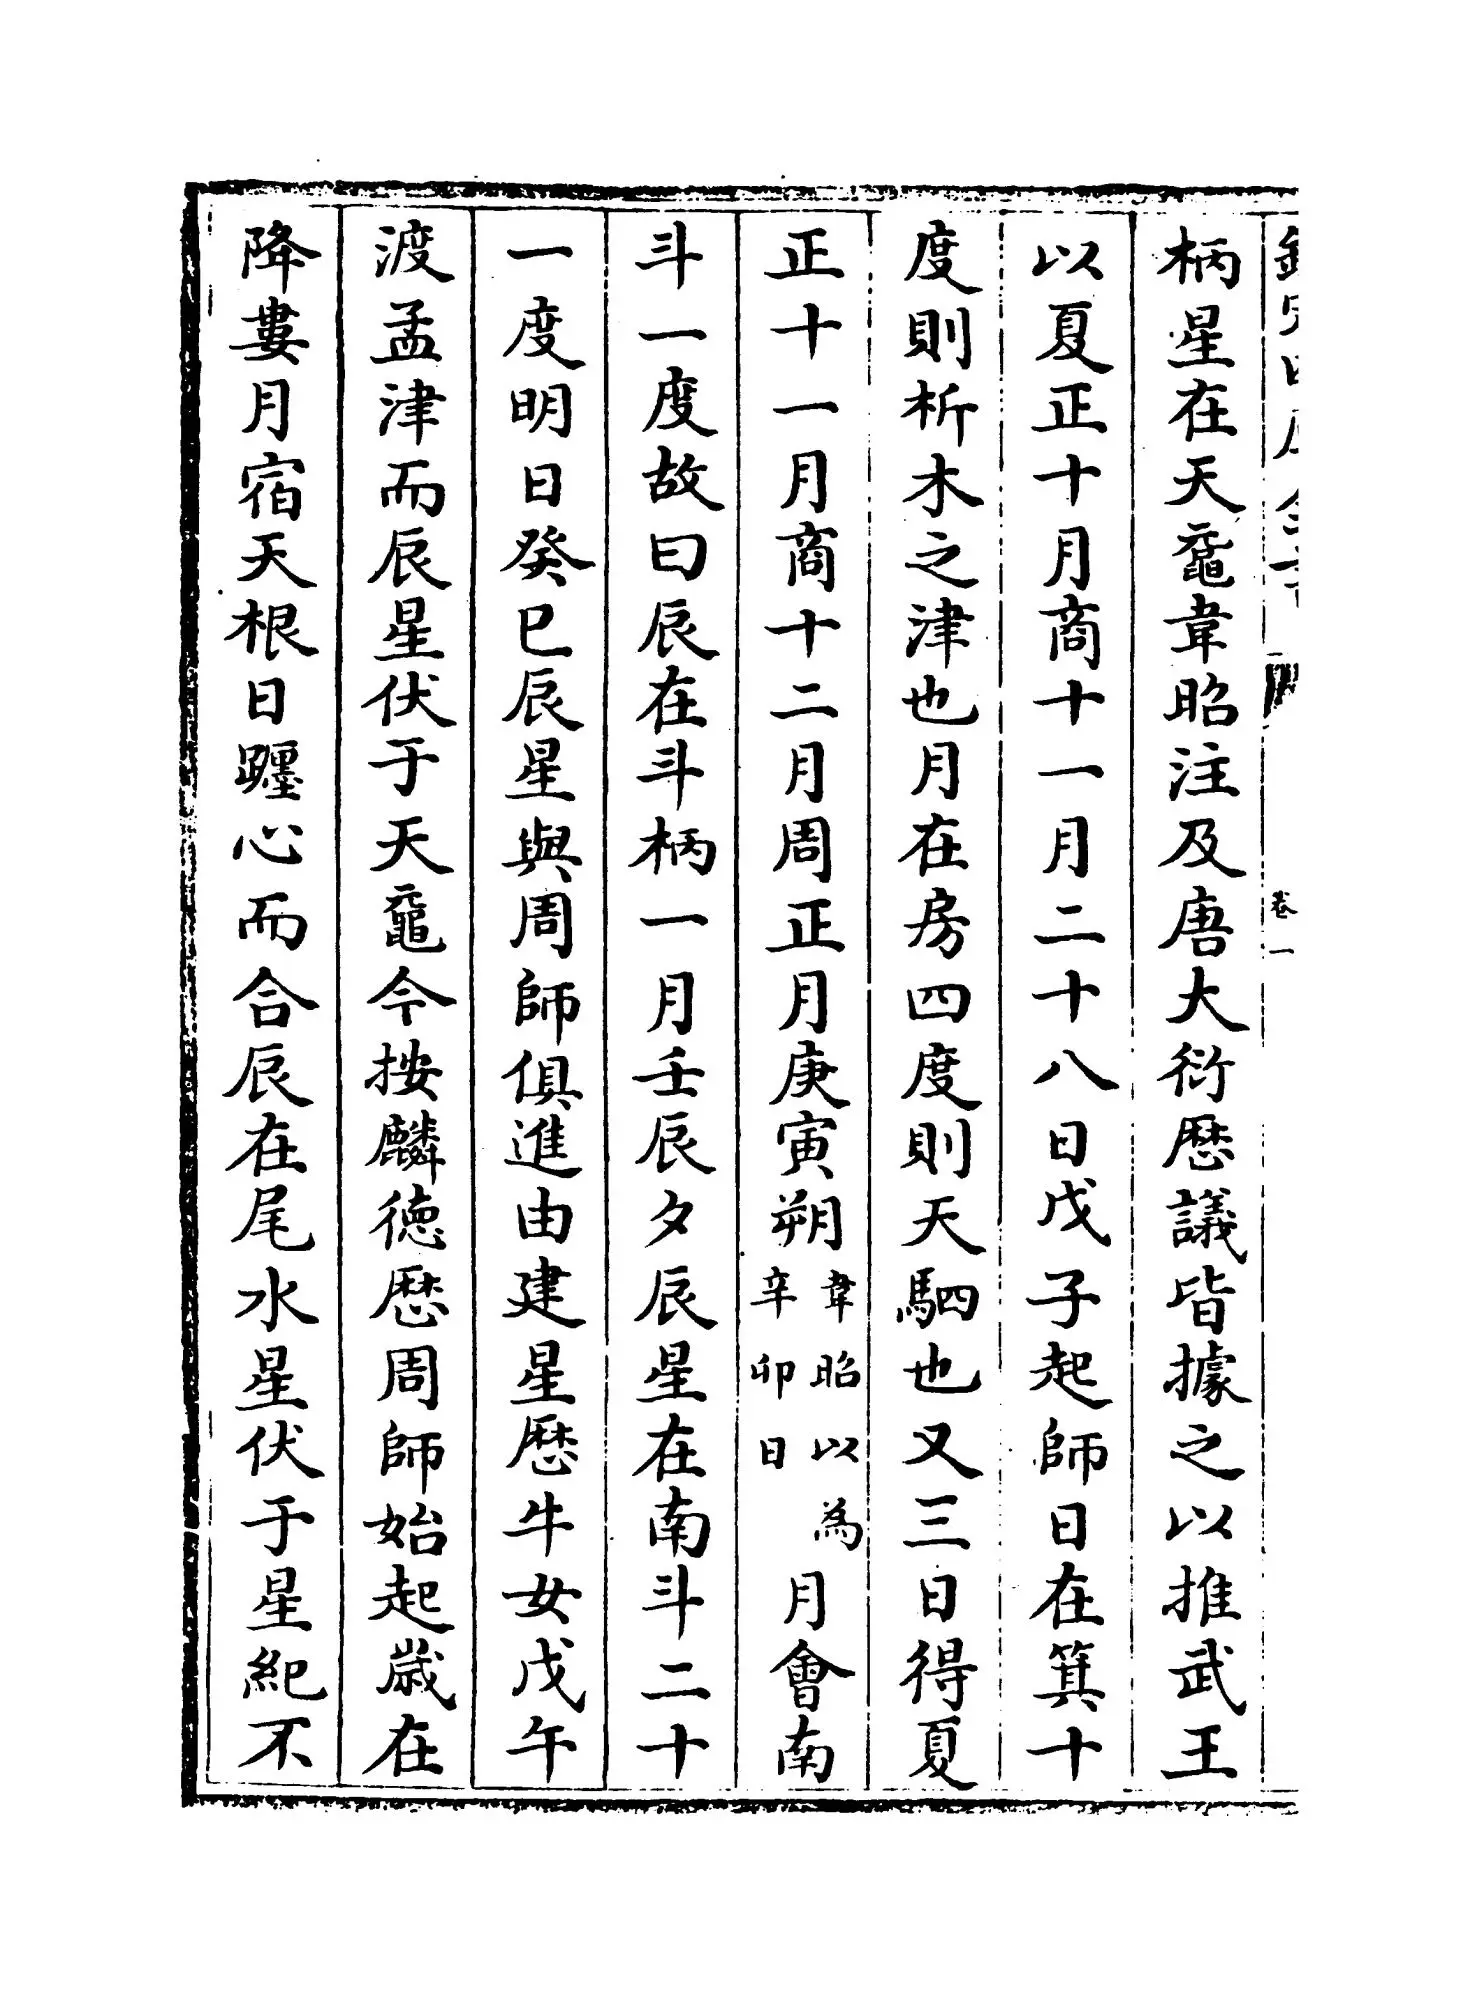 卷一
柄星在天黿韋昭注及唐大衍厯議皆據之以推武王
以夏正十月商十一月二十八日戊子起師日在箕十
度則析木之津也月在房四度則天駟也又三日得夏
正十一月商十二月周正月庚寅朔韋昭以為辛卯日月會南
斗一度故曰辰在斗柄一月壬辰夕辰星在南斗二十
一度明日癸巳辰星與周師俱進由建星厯牛女戊午
渡孟津而辰星伏于天黿今按麟徳厯周師始起歲在
降婁月宿天根日躔心而合辰在尾水星伏于星紀不